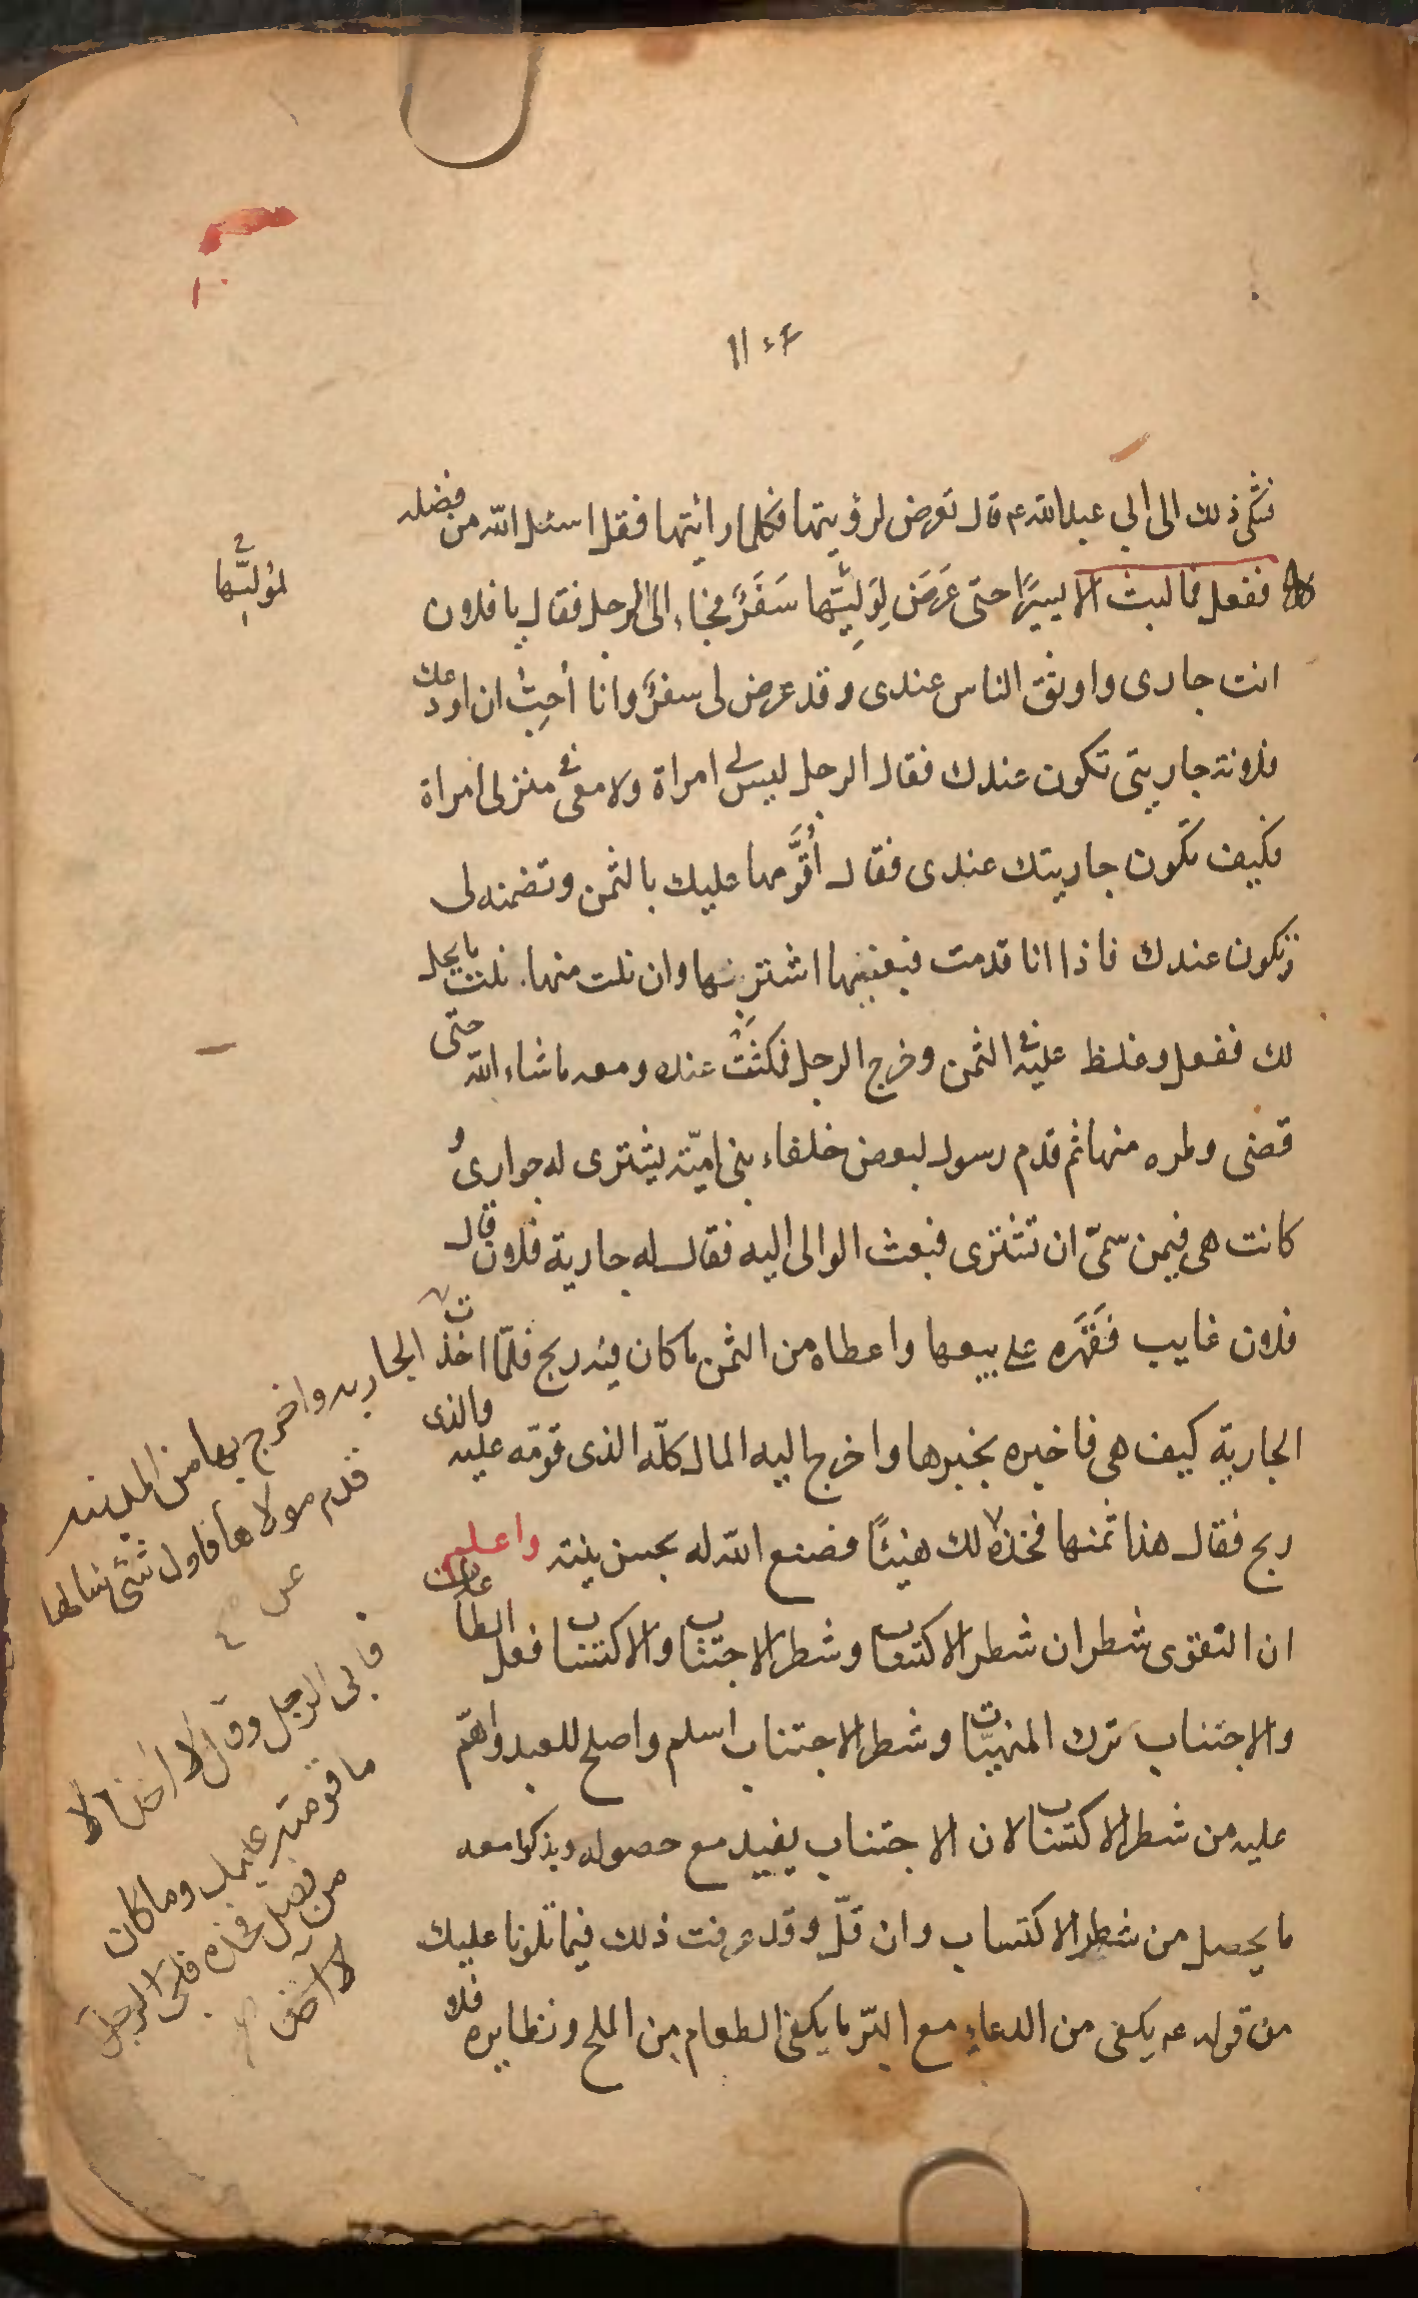 فشكى ذلك الى ابي عبدالله ع قال تعرض لرؤيتها فكلما رايتها فقل اسئل الله من فضله
ففعل فما لبث الا يسيرًا حتى عَرَضَ لِوَلِيِّها سَفَرٌ فجاء الى الرجل فقال يا فلان
لوليِّها
انت جارى واوثق الناس عندى وقد عرض لى سفرٌ وانا أحِبُّ ان اودعك
فلانة جاريتى تكون عندك فقال الرجل ليس لي امراة ولا معى في منزلى امراة
فكيف تكون جاريتك عندى فقال أُقَوِّمها عليك بالثمن وتضمنه لى
وتكون عندك فاذا انا قدمت فبعنيها اشتريها وان نلت منها نلت ما يحل
لك ففعل وغلظ عليه في الثمن وخرج الرجل فمكثَتْ عنده ومعه ما شاء الله حتى
قضى وطره منها ثم قدم رسول لبعض خلفاء بنى اميّة يشترى له جوارى و
كانت هى فيمن سمّى ان تشترى فبعث الوالى اليه فقال له جارية فلان قال
فلان غايب فَقَهَره على بيعها واعطاه من الثمن ما كان فيه ربح فلمّا اخذت
الجاريه واخرج بها من المدينه
قدم مولاها فاول شئ سالها
عن
الجارية كيف هى فاخبره بخبرها واخرج اليه المال كلّه الذى قوّمه عليه والذى
ربح فقال هذا ثمنها فخذه لك هنيئًا فصنع الله له بحسن نيته واعلم
فابى الرجل وقال لا اخذ الا
ما قومته عليك وما كان
من فضل فخذه فلك
ان التقوى شطران شطر الاكتساب وشطر الاجتناب والاكتساب فعل الطاعات
والاجتناب ترك المنهيّات وشطر الاجتناب اسلم واصلح للعبد واهمّ
عليه من شطر الاكتساب لان الاجتناب يفيد مع حصوله ويذكوا معه
ما يحصل من شطر الاكتساب وان قلّ وقد عرفت ذلك فيما تلونا عليك
من قوله ع يكفى من الدعاءِ مع البرّ ما يكفى الطعام من الملح ونظايره فلا